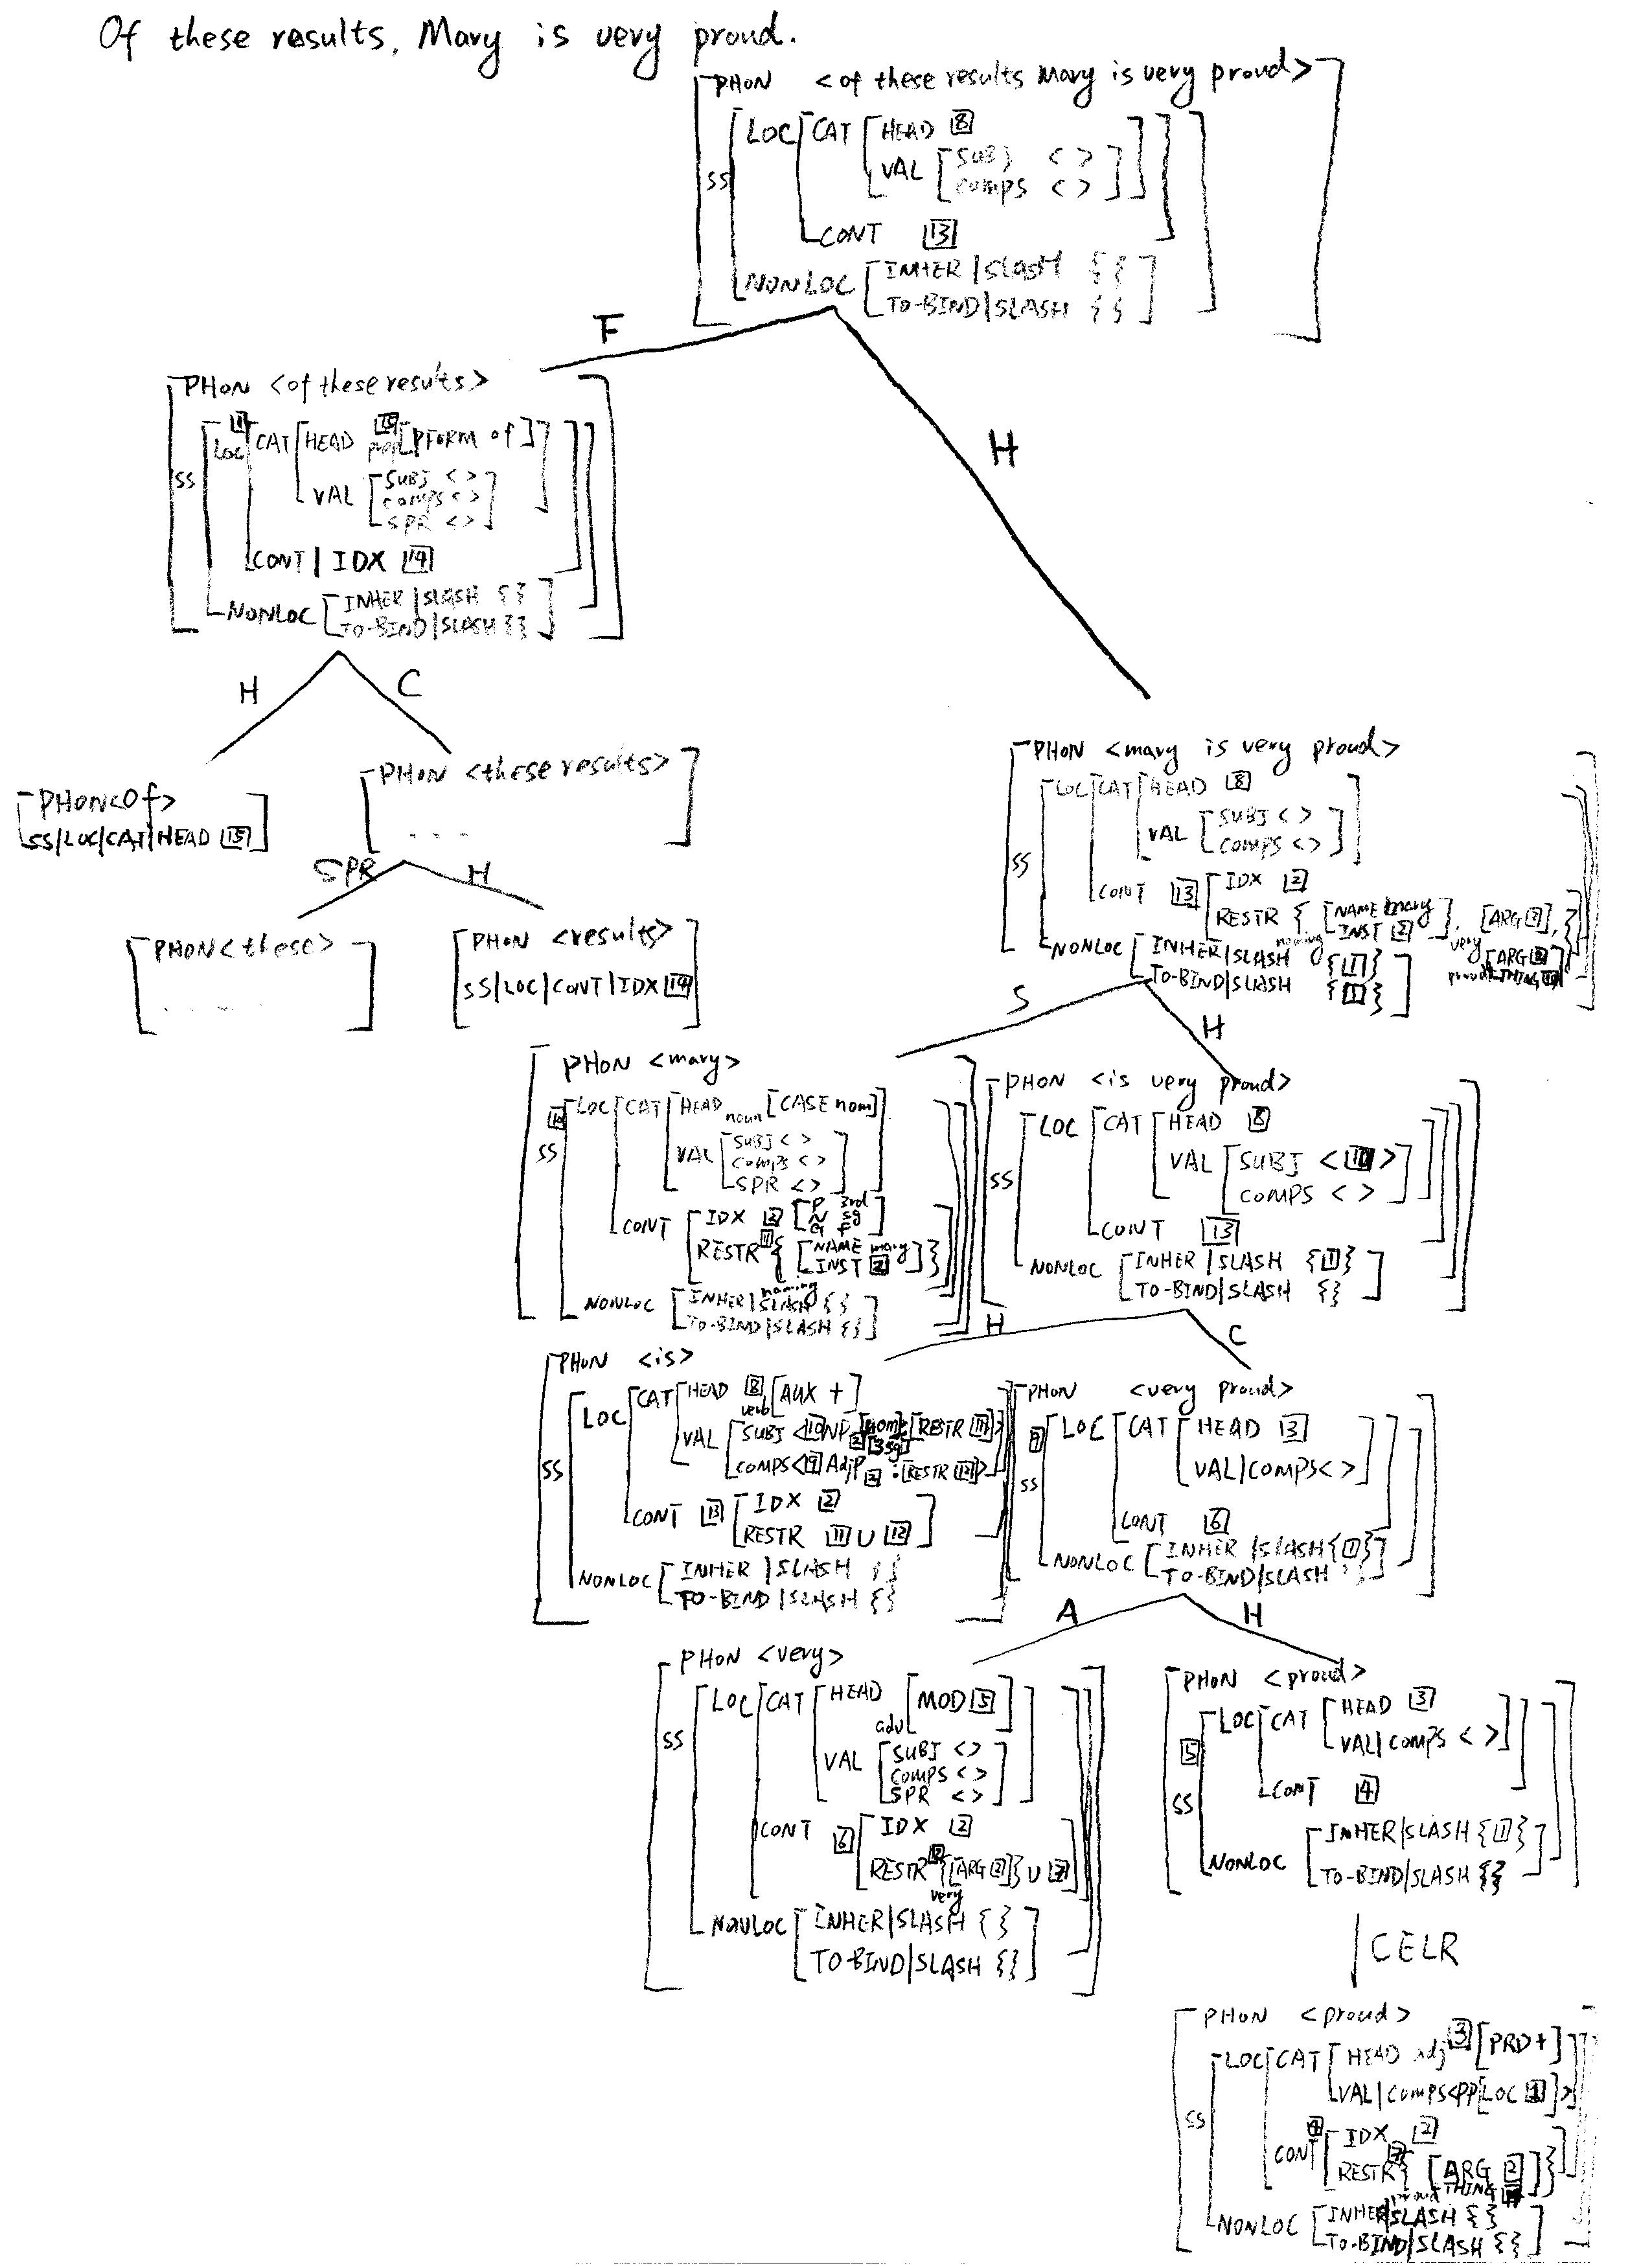 Of these results, Mary is very proud.
PHON <of these results Mary is very proud>
SS
LOC CAT HEAD 8
VAL SUBJ < >
COMPS < >
CONT 13
NONLOC INHER|SLASH { }
TO-BIND|SLASH { }
F
H
PHON <of these results>
SS
LOC CAT HEAD prep [PFORM of]
VAL SUBJ < >
COMPS < >
SPR < >
CONT | IDX 14
NONLOC INHER|SLASH { }
TO-BIND|SLASH { }
H C
PHON <Of>
SS|LOC|CAT|HEAD 15
PHON <these results>
. . .
SPR H
PHON <these>
. . . .
PHON <results>
SS|LOC|CONT|IDX 14
PHON <mary is very proud>
SS
LOC CAT HEAD 8
VAL SUBJ < >
COMPS < >
CONT 13 IDX 2
RESTR { [NAME mary
INST 2], [ARG 2], }
naming very
[ARG 2
THING 14]
proud
NONLOC INHER|SLASH {1}
TO-BIND|SLASH {1}
S H
PHON <mary>
10
SS
LOC CAT HEAD noun [CASE nom]
VAL SUBJ < >
COMPS < >
SPR < >
CONT IDX 2 [P 3rd
N sg
G F]
RESTR 11 { [NAME mary
INST 2] }
naming
NONLOC INHER|SLASH { }
TO-BIND|SLASH { }
PHON <is very proud>
SS
LOC CAT HEAD 8
VAL SUBJ <10>
COMPS < >
CONT 13
NONLOC INHER|SLASH {1}
TO-BIND|SLASH { }
H C
PHON <is>
SS
LOC CAT HEAD 8 verb [AUX +]
VAL SUBJ <10 NP [nom] 2 [3sg] : [RESTR 11]>
COMPS <9 AdjP 2 : [RESTR 12]>
CONT 13 IDX 2
RESTR 11 U 12
NONLOC INHER|SLASH { }
TO-BIND|SLASH { }
PHON <very proud>
9
SS
LOC CAT HEAD 3
VAL|COMPS < >
CONT 6
NONLOC INHER|SLASH {1}
TO-BIND|SLASH { }
A H
PHON <very>
SS
LOC CAT HEAD adv [MOD 5]
VAL SUBJ < >
COMPS < >
SPR < >
CONT 6 IDX 2
RESTR 12 {[ARG 2]} U 7
very
NONLOC INHER|SLASH { }
TO-BIND|SLASH { }
PHON <proud>
5
SS
LOC CAT HEAD 3
VAL|COMPS < >
CONT 4
NONLOC INHER|SLASH {1}
TO-BIND|SLASH { }
CELR
PHON <proud>
SS
LOC CAT HEAD adj 3 [PRD +]
VAL|COMPS <PP[LOC 1]>
CONT 4 IDX 2
RESTR 7 { [ARG 2
THING 14] }
proud
NONLOC INHER|SLASH { }
TO-BIND|SLASH { }